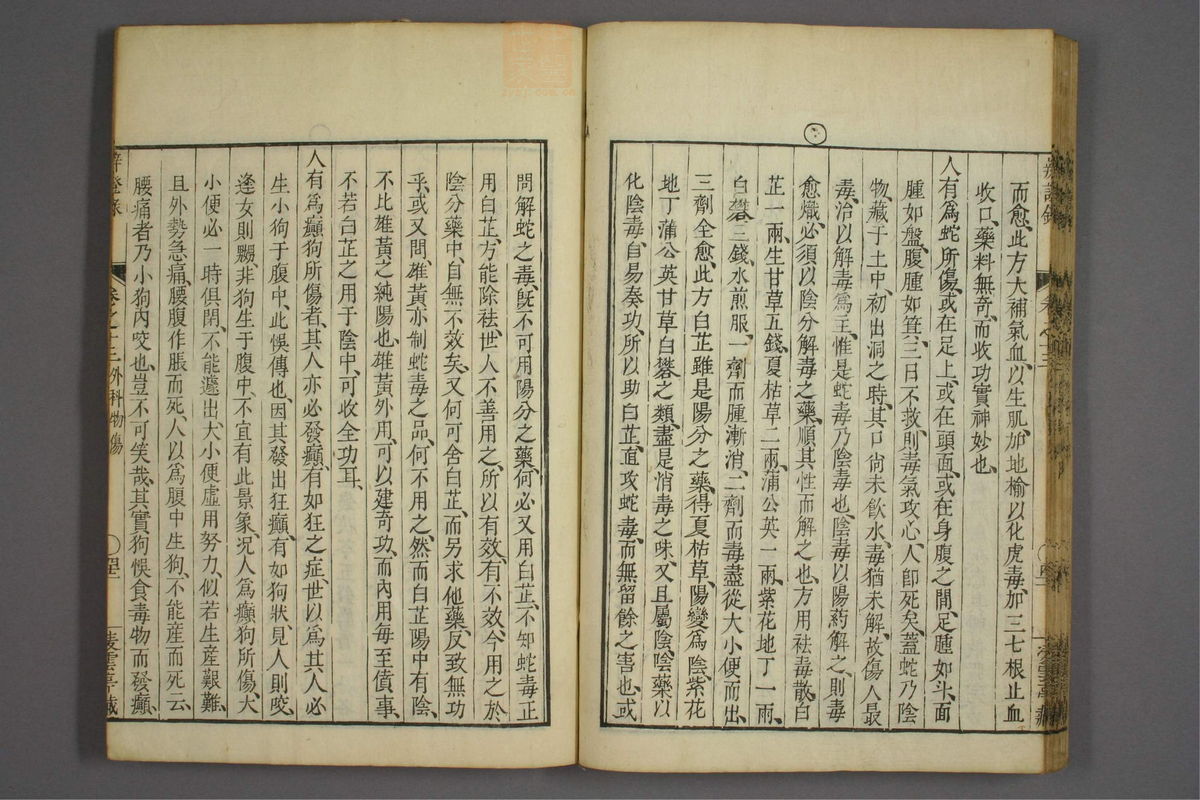 而愈、此方大補氣血、以生肌、加地榆以化虎毒、加三七根止血
收口、藥料無奇、而收功實神妙也、
人有爲蛇所傷、或在足上、或在頭面、或在身腹之間、足腫如斗、面
腫如盤、腹腫如箕、三日不救、則毒氣攻心、人卽死矣、蓋蛇乃陰
物、藏于土中、初出洞之時、其口尙未飮水、毒猶未解、故傷人最
毒、治以解毒爲主、惟是蛇毒乃陰毒也、陰毒以陽药解之、則毒
愈熾、必須以陰分解毒之藥、順其性而解之也、方用祛毒散、白
芷一兩、生甘草五錢、夏枯草二兩、蒲公英一兩、紫花地丁一兩、
白礬三錢、水煎服、一劑而腫漸消、二劑而毒盡從大小便而出、
三劑全愈、此方白芷雖是陽分之藥、得夏枯草、陽變爲陰、紫花
地丁蒲公英甘草白礬之類、盡是消毒之味、又且屬陰、陰藥以
化陰毒、自易奏功、所以助白芷、直攻蛇毒、而無留餘之害也、或
問解蛇之毒、旣不可用陽分之藥、何必又用白芷、不知蛇毒正
用白芷、方能除祛、世人不善用之、所以有效、有不效、今用之於
陰分藥中、自無不效矣、又何可舍白芷、而另求他藥、反致無功
乎、或又問、雄黃亦制蛇毒之品、何不用之、然而白芷陽中有陰、
不比雄黃之純陽也、雄黃外用、可以建奇功、而內用每至僨事、
不若白芷之用于陰中、可收全功耳、
人有爲癲狗所傷者、其人亦必發癲、有如狂之症、世以爲其人必
生小狗于腹中、此悞傳也、因其發出狂癲、有如狗狀、見人則咬、
逢女則嬲、非狗生于腹中、不宜有此景象、况人爲癲狗所傷、大
小便必一時俱閉、不能遽出、大小便虛用努力、似若生産艱難、
且外勢急痛、腰腹作脹而死、人以爲腹中生狗、不能産而死云、
腰痛者乃小狗內咬也、豈不可笑哉、其實狗悞食毒物而發癲、
卷之十三外科物傷